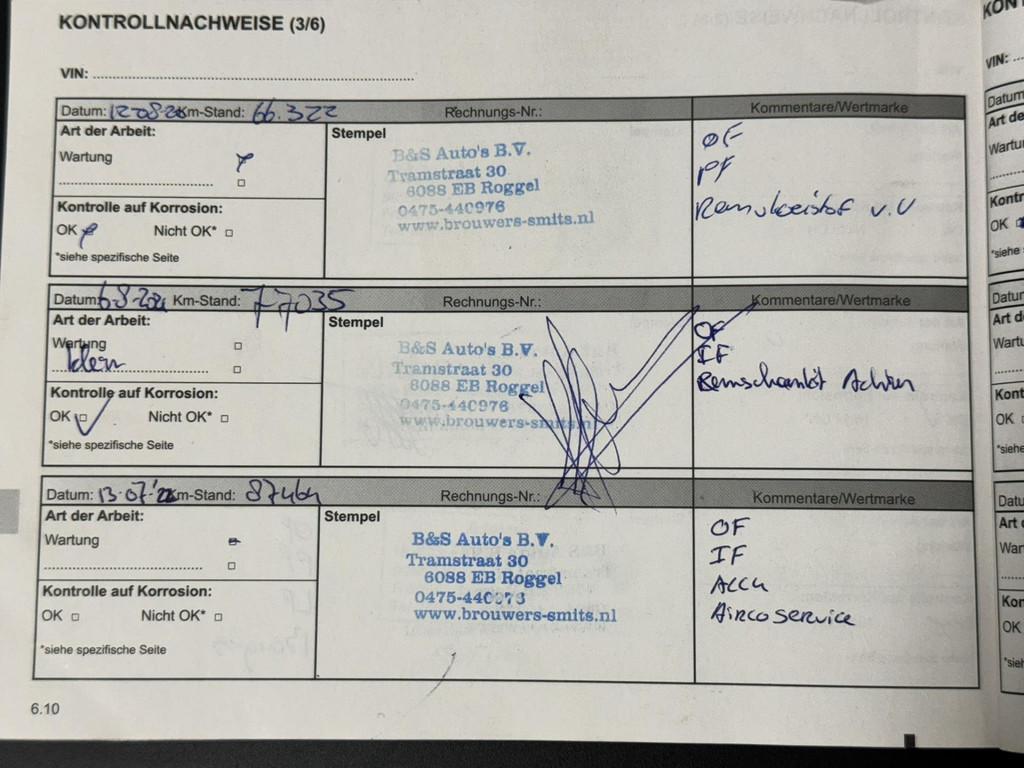 KONTROLLNACHWEISE (3/6)
VIN:
Datum: 12-08-20 Km-Stand: 66.322 Rechnungs-Nr.: Kommentare/Wertmarke
Art der Arbeit: Stempel
Wartung
Kontrolle auf Korrosion:
OK Nicht OK*
*siehe spezifische Seite
B&S Auto's B.V.
Tramstraat 30
6088 EB Roggel
0475-440976
www.brouwers-smits.nl
OF
PF
Remvloeistof v.V
Datum: Km-Stand: 77035 Rechnungs-Nr.: Kommentare/Wertmarke
Art der Arbeit: Stempel
Wartung
klein
Kontrolle auf Korrosion:
OK Nicht OK*
*siehe spezifische Seite
B&S Auto's B.V.
Tramstraat 30
6088 EB Roggel
0475-440976
www.brouwers-smits.nl
OF
IF
Achter
Datum: 13-07-'22 Km-Stand: Rechnungs-Nr.: Kommentare/Wertmarke
Art der Arbeit: Stempel
Wartung
Kontrolle auf Korrosion:
OK Nicht OK*
*siehe spezifische Seite
B&S Auto's B.V.
Tramstraat 30
6088 EB Roggel
www.brouwers-smits.nl
OF
IF
Accu
Airco service
6.10
VIN:
OK
OK
OK